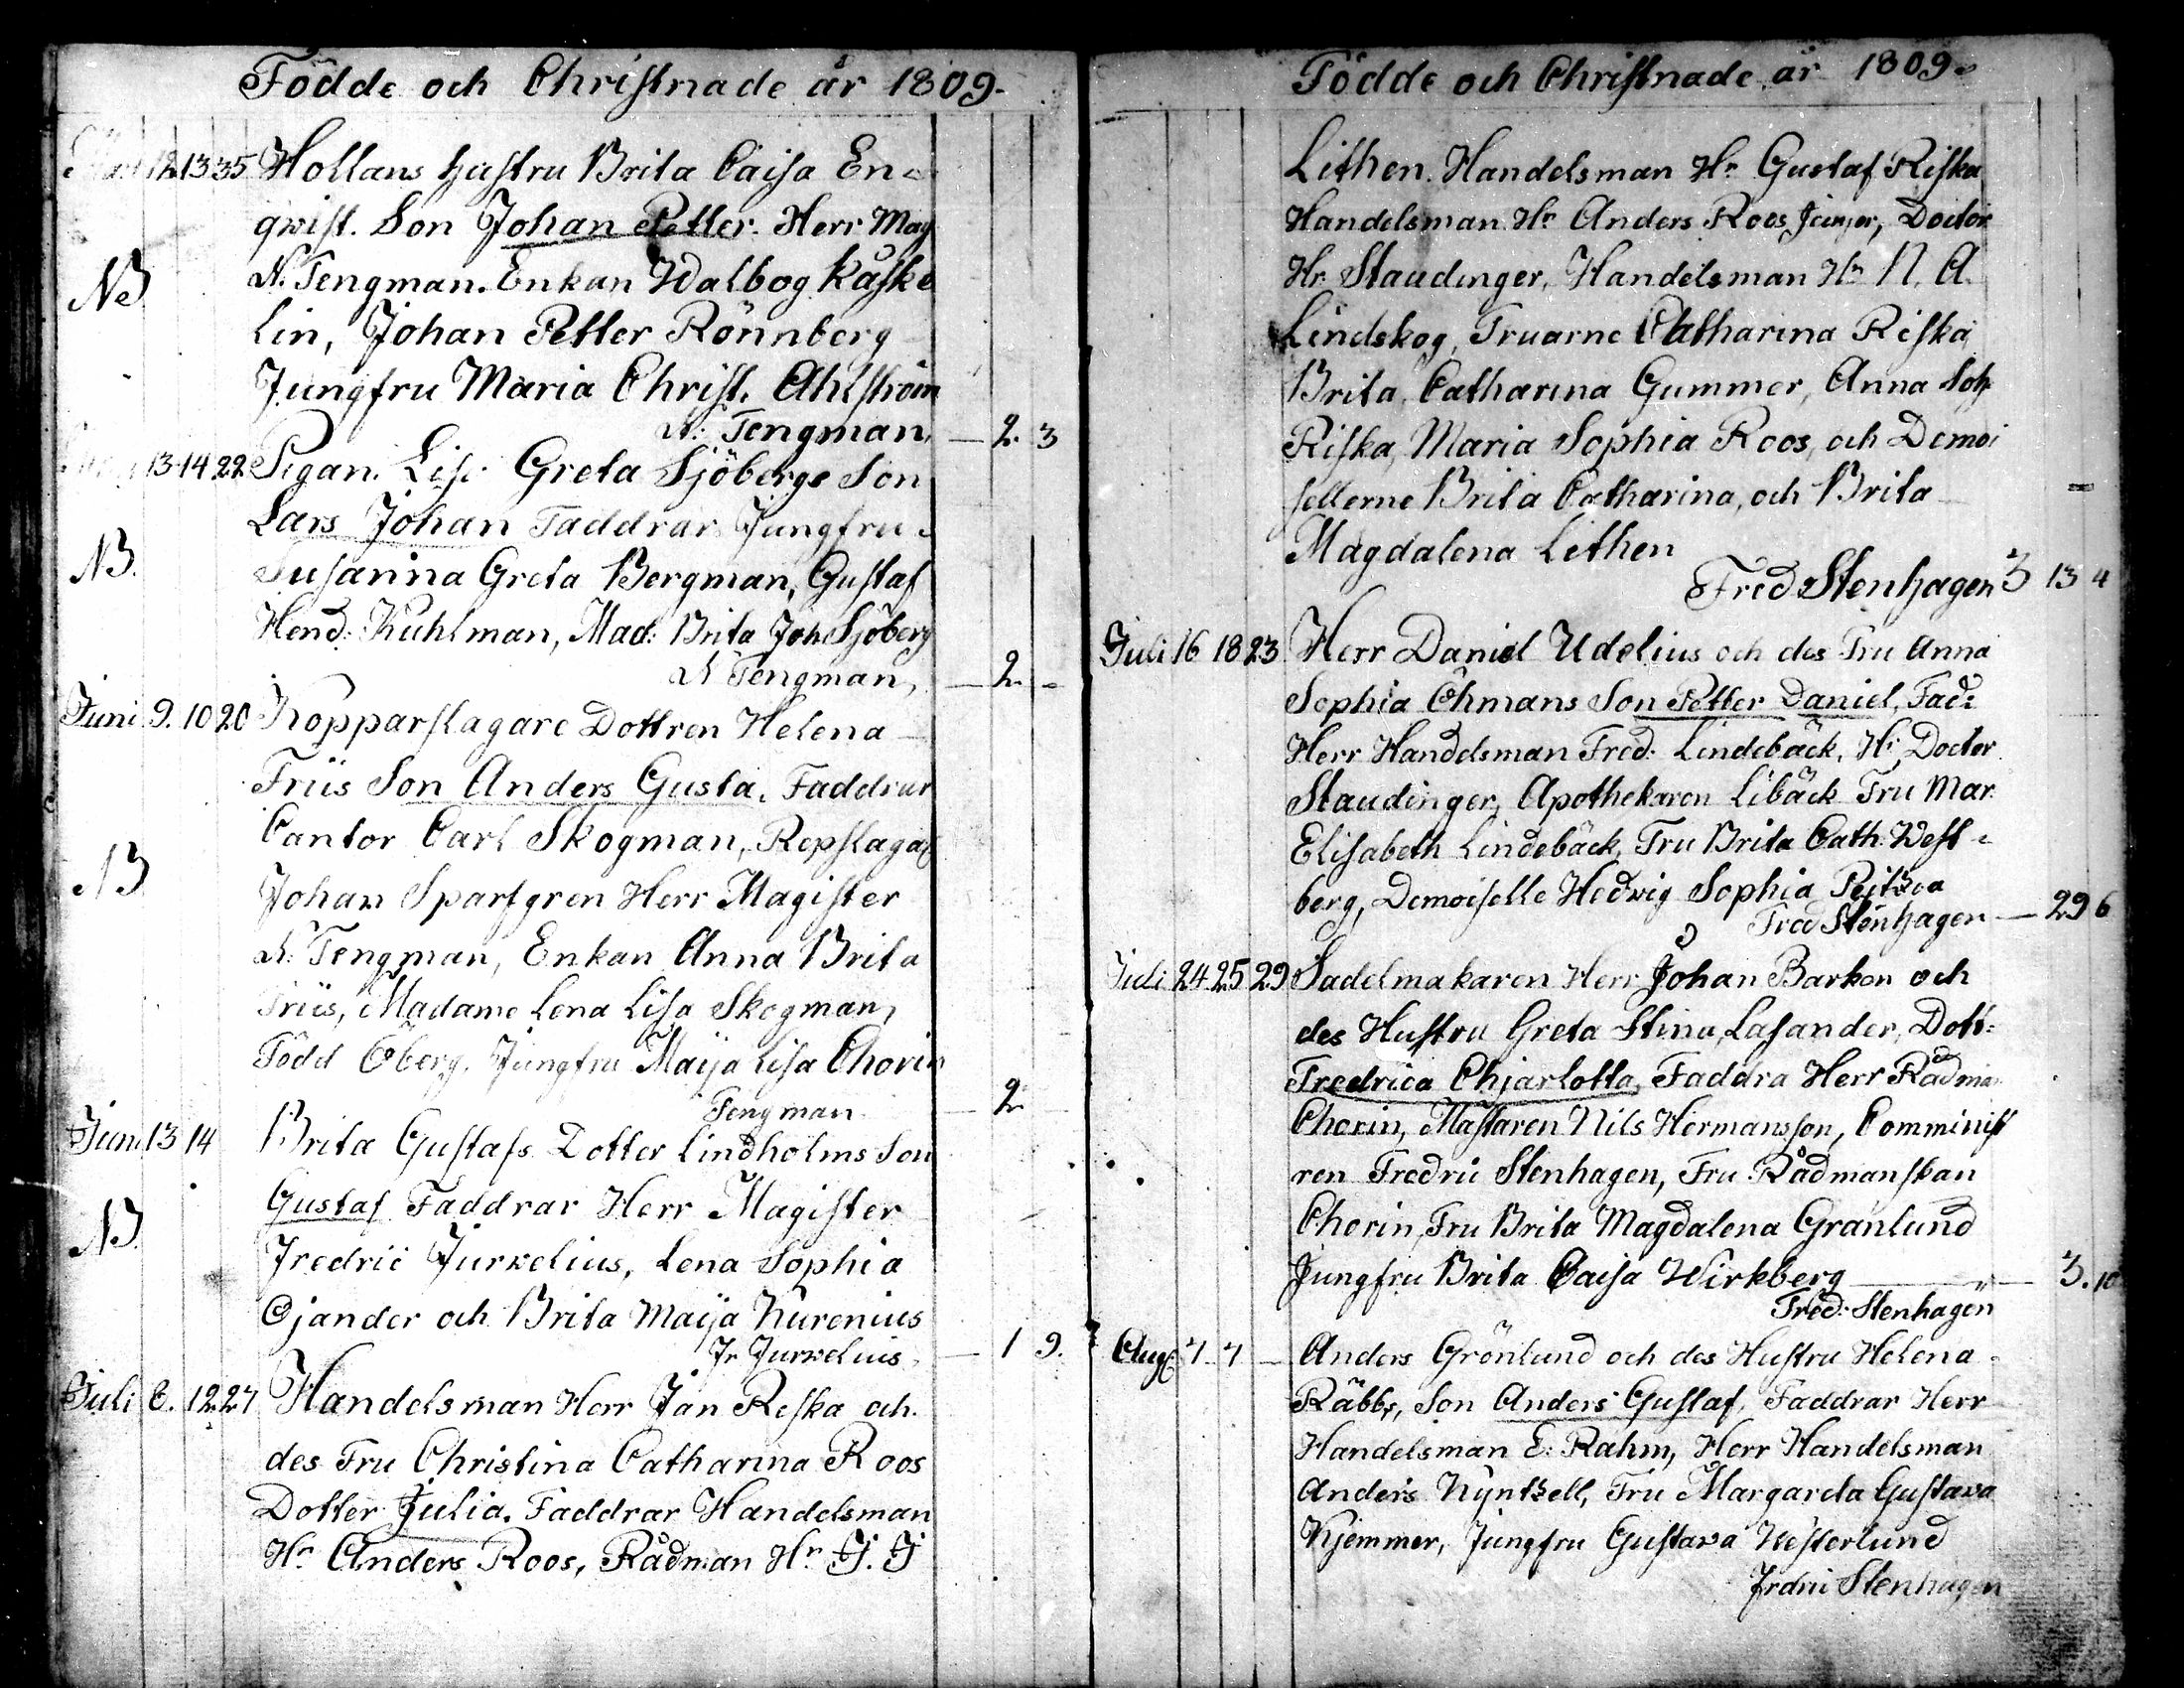 Födde och Christnade år 1809.
12 13 35 Hollans hustru Brita Caisa En-
qwist. Son Johan Petter. Herr Mag
N. Tengman. Enkan Walbog Kåske
NB
lin, Johan Petter Rönnberg
Jungfru Maria Christ. Ahlström
N: Tengman, — 2. 3
13 14 22 Pigan Lis. Greta Sjöbergs Son
Lars Johan Faddrar Jungfru
NB.
Susanna Greta Bergman, Gustaf
Hend: Kuhlman, Mad: Brita Joh Sjöberg
N Tengman, — 2. -
Juni 9. 10 20 Kopparslagare Dottren Helena
Friis Son Anders Gusta. Faddrar
Cantor Carl Skogman, Repslagar
NB
Johan Sparfgren Herr Magister
N: Tengman, Enkan Anna Brita
Friis, Madame Lena Lisa Skogman,
Född Öberg, Jungfru Maija Lisa Chorin
Tengman — 2
Juni 13 14 Brita Gustafs Dotter Lindholms Son
Gustaf Faddrar Herr Magister
NB
Fredric Jurvelius, Lena Sophia
Ojander och Brita Maija Kurenius
Fr Jurvelius, — 1 9.
Juli 6. 12 27 Handelsman Herr Jan Reska och
des Fru Christina Catharina Roos
Dotter Julia. Faddrar Handelsman
Hr Anders Roos, Rådman Hr J. J
Födde och Christnade år 1809.
Lithen. Handelsman Hr Gustaf Riska
Handelsman Hr Anders Roos Junjor, Doctor
Hr Staudinger, Handelsman Hr N. A.
Lindskog, Fruarne Catharina Riska,
Brita Catharina Gummer, Anna Soph
Riska, Maria Sophia Roos, och Demoi
sellerne Brita Catharina, och Brita
Magdalena Lithen
Fred Stenhagen 3 13 4
Juli 16 18 23 Herr Daniel Udelius och des Fru Anna
Sophia Öhmans Son Petter Daniel, Fad:
Herr Handelsman Fred: Lindebäck, Hr Doctor
Staudinger, Apothekaren Libäck Fru Mar.
Elisabeth Lindebäck, Fru Brita Cath: West-
berg, Demoiselle Hedvig Sophia
Fred Stenhagen — 29 6
Juli 24 25 29 Sadelmakaren Herr Johan Barkon och
des Hustru Greta Stina, Lasander, Dott:
Fredrica Chjarlotta, Faddra Herr Rådman
Chorin, Mästaren Nils Hermansson, Comminist
ren Fredric Stenhagen, Fru Rådmanskan
Chorin, Fru Brita Magdalena Granlund
Jungfru Brita Caisa Wirkberg — 3. 10
Fred: Stenhagen
Aug 7 7 — Anders Grönlund och des Hustru Helena
Räbbs, Son Anders Gustaf, Faddrar Herr
Handelsman E: Rahm, Herr Handelsman
Anders Nyntzell, Fru Margareta Gustava
Kjemmer, Jungfru Gustava Westerlund
Frdric Stenhagen